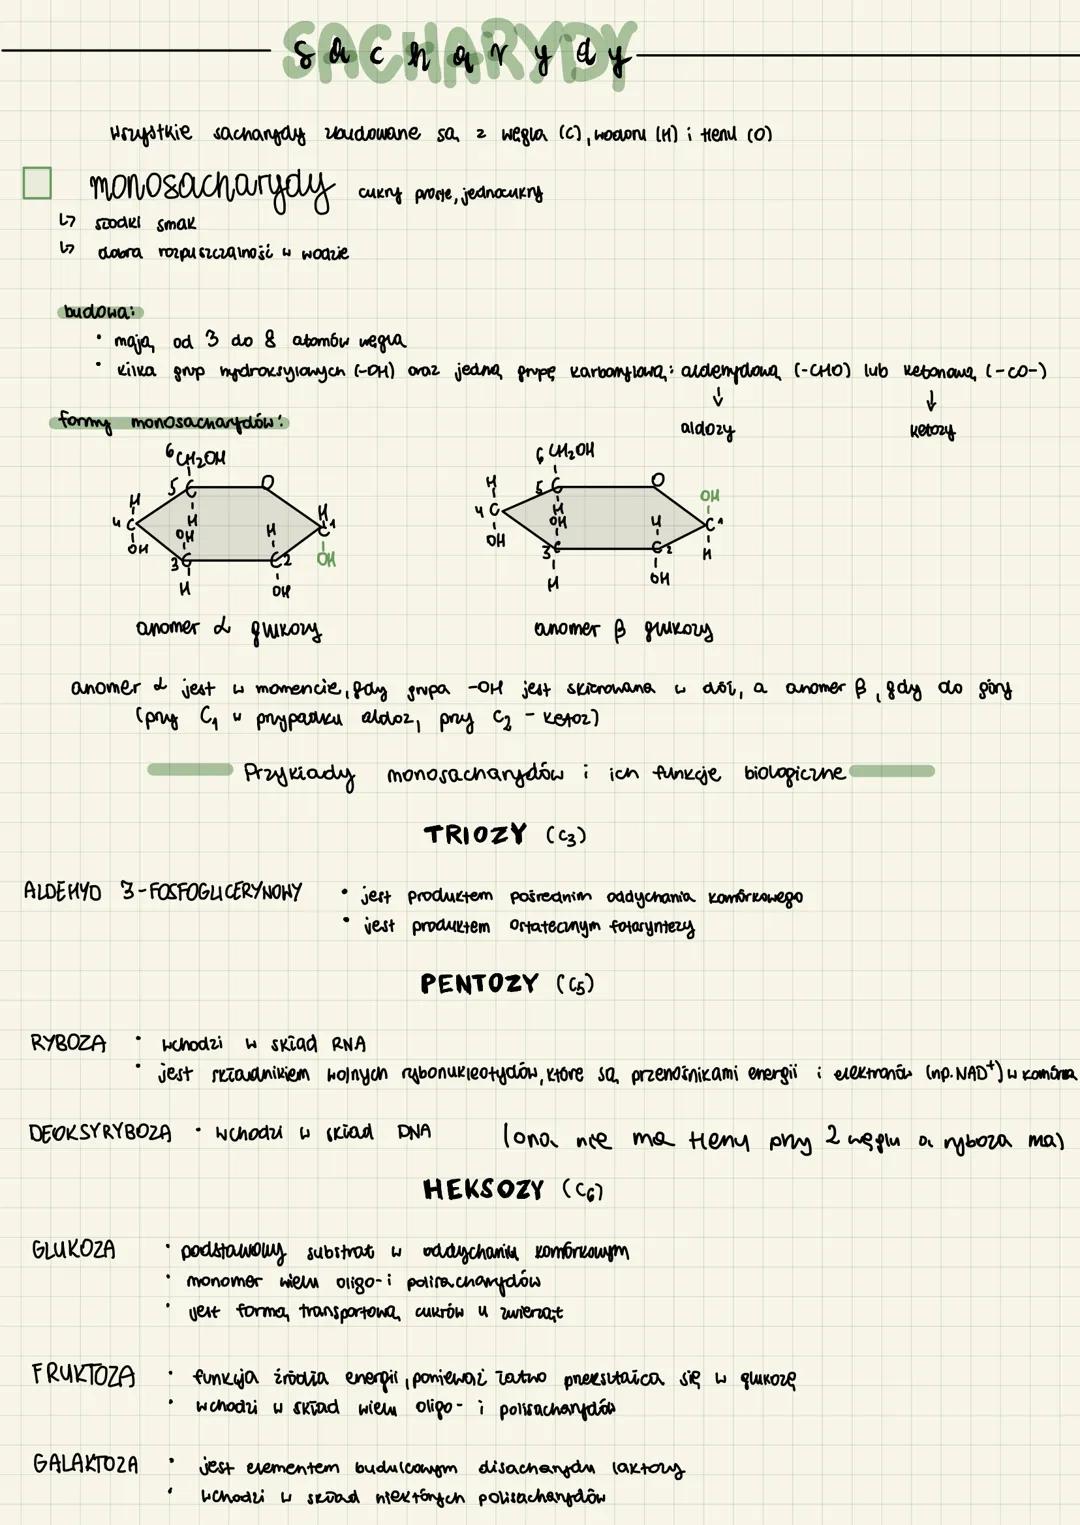 SACHARYDY
sacharydy
wszystkie sacharydy zbudowane są z węgla (C), wodoru (H) i tlenu (O)
monosacharydy cukry proste, jednocukry
↳ słodki smak
↳ dobra rozpuszczalność w wodzie
budowa:
• mają od 3 do 8 atomów węgla
• kilka grup hydroksylowych (-OH) oraz jedną grupę karbonylową: aldehydową (-CHO) lub ketonową (-CO-)
↓ ↓
aldozy ketozy
formy monosacharydów:
6 CH₂OH 6 CH₂OH
5 C O 5 C O OH
H H H
4 C H H C 1 4 C H H C 1
OH OH H OH OH OH H
3 C C 2 3 C C 2
H OH H OH
anomer α glukozy anomer β glukozy
anomer α jest w momencie, gdy grupa -OH jest skierowana w dół, a anomer β, gdy do góry
(przy C₁ w przypadku aldoz, przy C₂ - ketoz)
Przykłady monosacharydów i ich funkcje biologiczne
TRIOZY (C₃)
ALDEHYD 3-FOSFOGLICERYNOWY • jest produktem pośrednim oddychania komórkowego
• jest produktem ostatecznym fotosyntezy
PENTOZY (C₅)
RYBOZA • wchodzi w skład RNA
• jest składnikiem wolnych rybonukleotydów, które są przenośnikami energii i elektronów (np. NAD⁺) w komórce
DEOKSYRYBOZA • wchodzi w skład DNA (ona nie ma tlenu przy 2 węglu a ryboza ma)
HEKSOZY (C₆)
GLUKOZA • podstawowy substrat w oddychaniu komórkowym
• monomer wielu oligo- i polisacharydów
• jest formą transportową cukrów u zwierząt
FRUKTOZA • funkcja źródła energii, ponieważ łatwo przekształca się w glukozę
• wchodzi w skład wielu oligo- i polisacharydów
GALAKTOZA • jest elementem budulcowym disacharydu laktozy
• wchodzi w skład niektórych polisacharydów